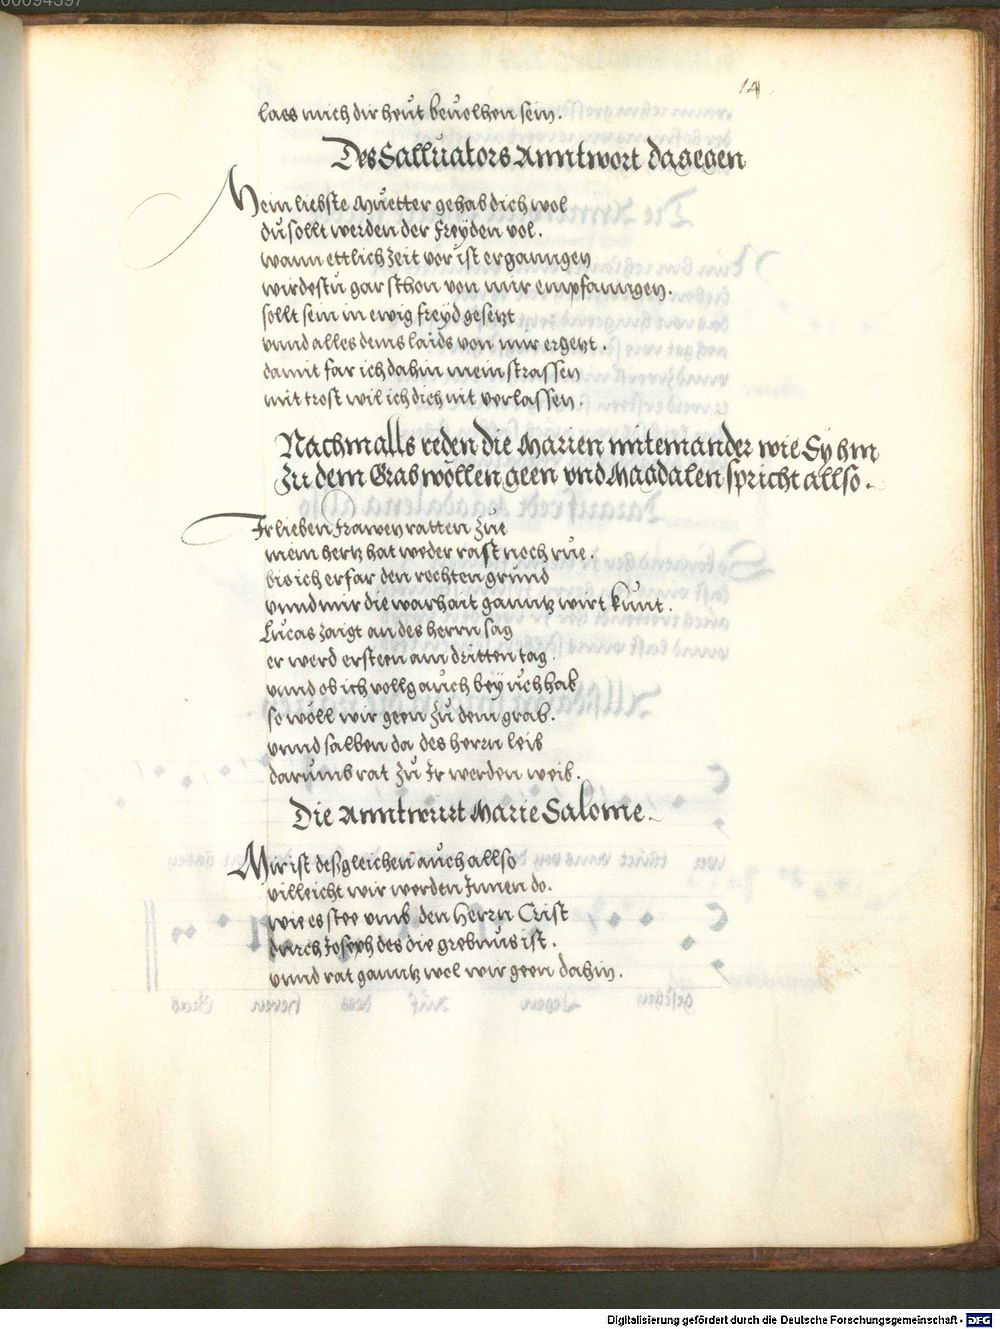 14
lass mich dir heut beuolhen sein.
Des Salluators Anntwort dagegen
Mein liebste Muetter gehab dich wol
du sollt werden der Freyden vol.
wann ettlich zeit vor ist erganngen
wirdestu gar schon von mir empfanngen.
sollt sein in ewig freyd gesetzt
vnnd alles deins laids von mir ergetzt.
damit far ich dahin mein strassen
mit trost wil ich dich nit verlassen.
Nachmalls reden die Marien miteinander wie Sy hin
Zu dem Grab wöllen geen vnd Magdalen spricht allso.
Ir lieben Frawen ratten zue
mein hertz hat weder rast noch rue.
bis ich erfar den rechten grund
vnnd mir die warhait ganntz wirt kunt.
Lucas zaigt an des herrn sag
er werd ersteen am dritten tag.
vnnd ob ich vollg auch bey uch hab
so wöll wir geen zu dem grab.
vnnd salben da des herrn leib
darumb rat zu Ir werden weib.
Die Anntwurrt Marie Salome.
Mir ist desßgleichen auch allso
villeicht wir werden Innen do.
wie es stee vmb den Herrn Crist
durch Joseph des die grebnus ist.
vnnd rat ganntz wol wir geen dahin.
Digitalisierung gefördert durch die Deutsche Forschungsgemeinschaft - DFG